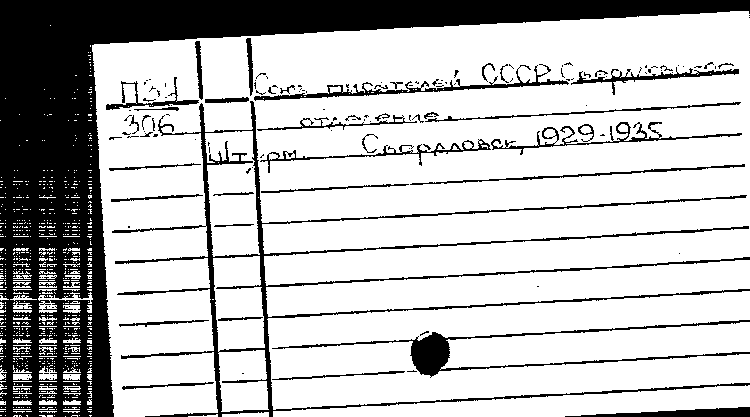 ПЗУ Союз писателей СССР. Свердловское
306 отделение.
Штурм. Свердловск, 1929-1935.